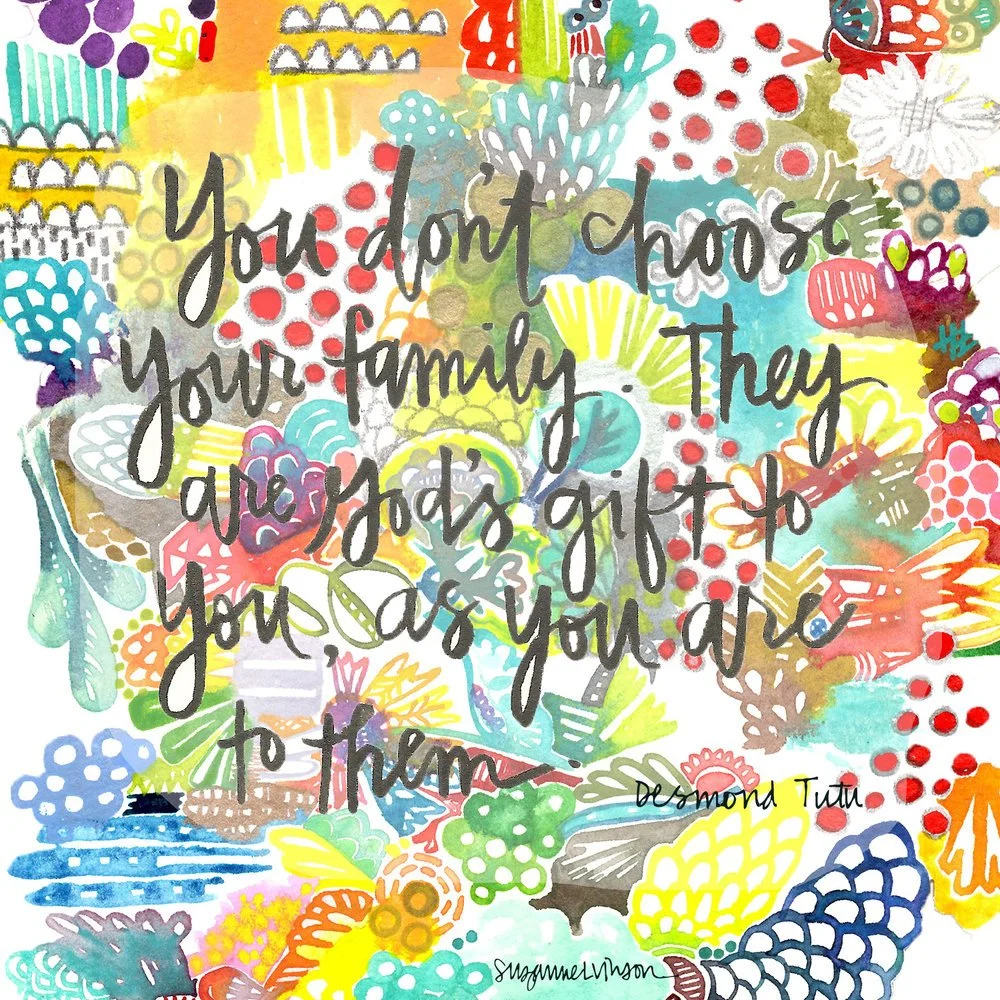 You don't choose
your family They
are God's gift to
you, as you are
to them
Desmond Tutu
SuzanneLVinson